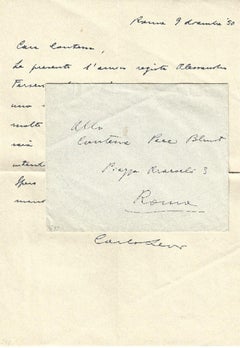 Roma 9 dicembre '50
Cara Contessa,
Le presento l'amico regista Alessandro
Fersen
uno
molto
sua
intend
Spero
mand
Alla
Contessa Pecci Blunt
Piazza Aracoeli 3
Roma
Carlo Levi